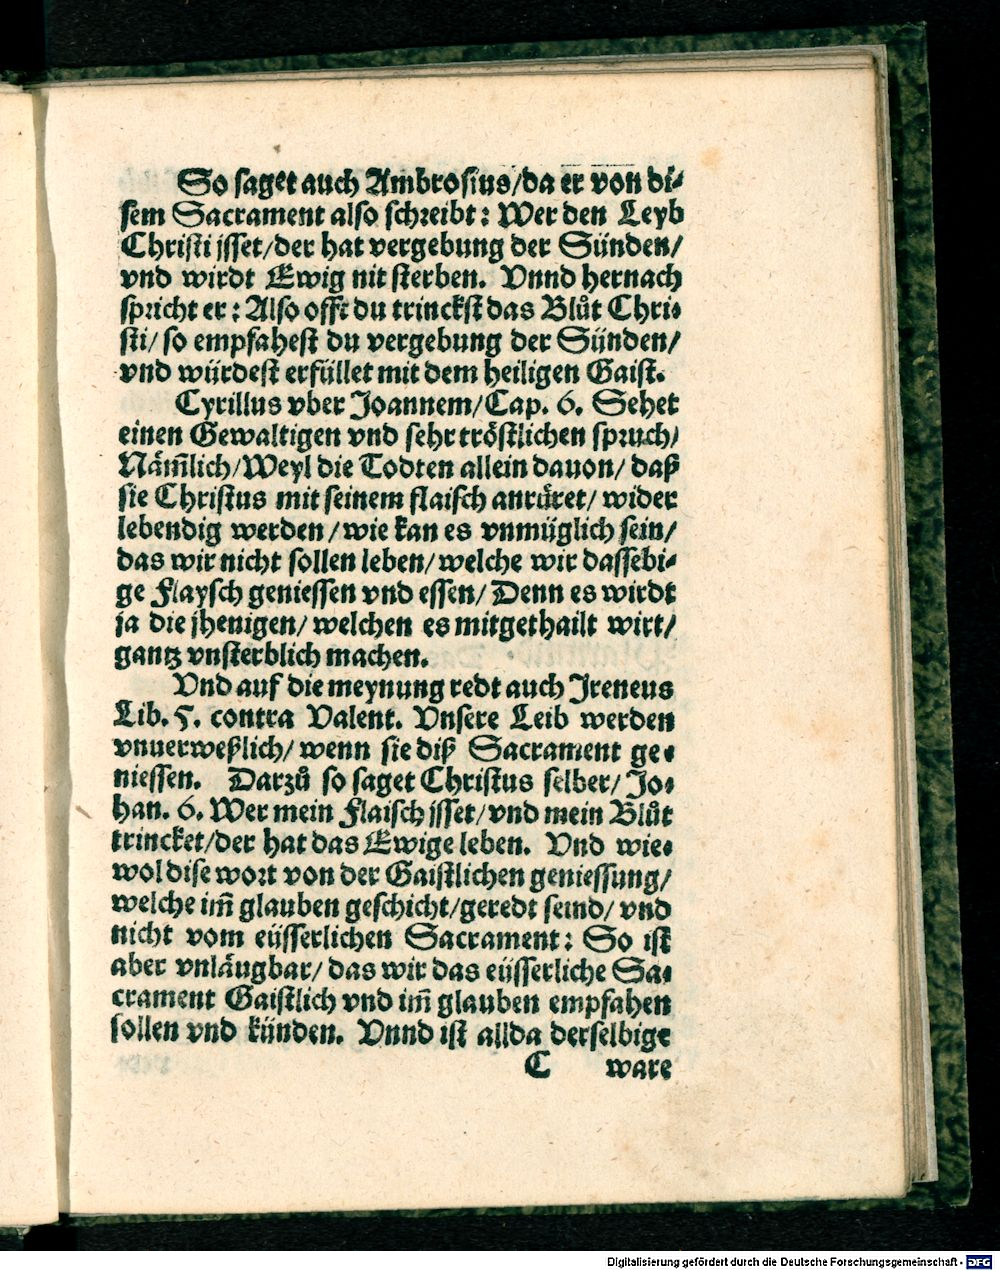 So saget auch Ambrosius/da er von di-
sem Sacrament also schreibt: Wer den Leyb
Christi isset/der hat vergebung der Sünden/
vnd wirdt Ewig nit sterben. Vnnd hernach
spricht er: Also offt du trinckst das Blůt Chri-
sti/ so empfahest du vergebung der Sünden/
vnd würdest erfüllet mit dem heiligen Gaist.
Cyrillus vber Joannem/Cap. 6. Sehet
einen Gewaltigen vnd sehr tröstlichen spruch/
Näm̃lich/Weyl die Todten allein dauon/ daß
sie Christus mit seinem flaisch anrüret/ wider
lebendig werden/wie kan es vnmüglich sein/
das wir nicht sollen leben/welche wir dassebi-
ge Flaysch geniessen vnd essen/ Denn es wirdt
ja die jhenigen/ welchen es mitgethailt wirt/
gantz vnsterblich machen.
Vnd auf die meynung redt auch Jreneus
Lib. 5. contra Valent. Vnsere Leib werden
vnuerweßlich/ wenn sie diß Sacrament ge-
niessen. Darzů so saget Christus selber/ Jo-
han. 6. Wer mein Flaisch isset/vnd mein Blůt
trincket/der hat das Ewige leben. Vnd wie-
wol dise wort von der Gaistlichen geniessung/
welche im̃ glauben geschicht/geredt seind/ vnd
nicht vom eüsserlichen Sacrament: So ist
aber vnläugbar/ das wir das eüsserliche Sa-
crament Gaistlich vnd im̃ glauben empfahen
sollen vnd künden. Vnnd ist allda derselbige
C ware
Digitalisierung gefördert durch die Deutsche Forschungsgemeinschaft - DFG